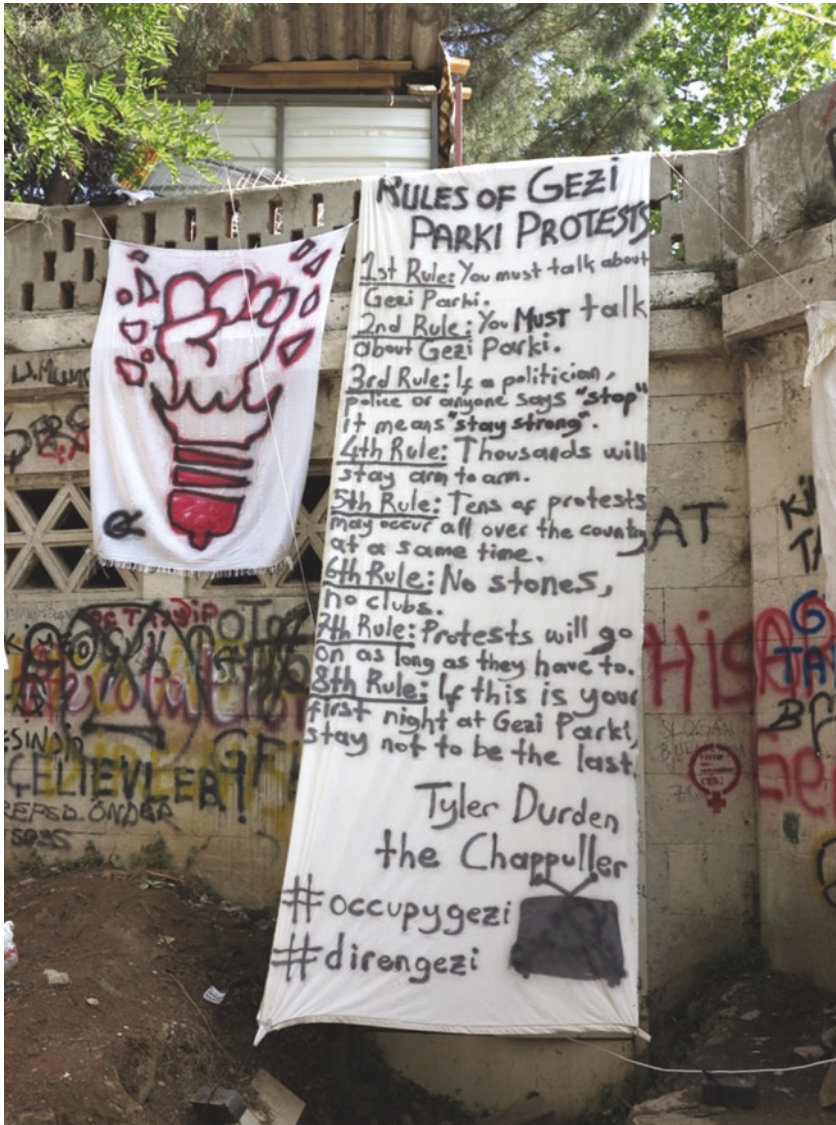 RULES OF GEZI
PARKI PROTESTS
1st Rule: You must talk about
Gezi Parki.
2nd Rule: You MUST talk
about Gezi Parki.
3rd Rule: If a politician,
police or anyone says "stop"
it means "stay strong".
4th Rule: Thousands will
stay arm to arm.
5th Rule: Tens of protests
may occur all over the country
at a same time.
6th Rule: No stones,
no clubs.
7th Rule: Protests will go
on as long as they have to.
8th Rule: If this is your
first night at Gezi Parki,
stay not to be the last.
Tyler Durden
the Chappuller
#occupygezi
#direngezi
AT
HiS
SLOGAN
ÇELİEVLER